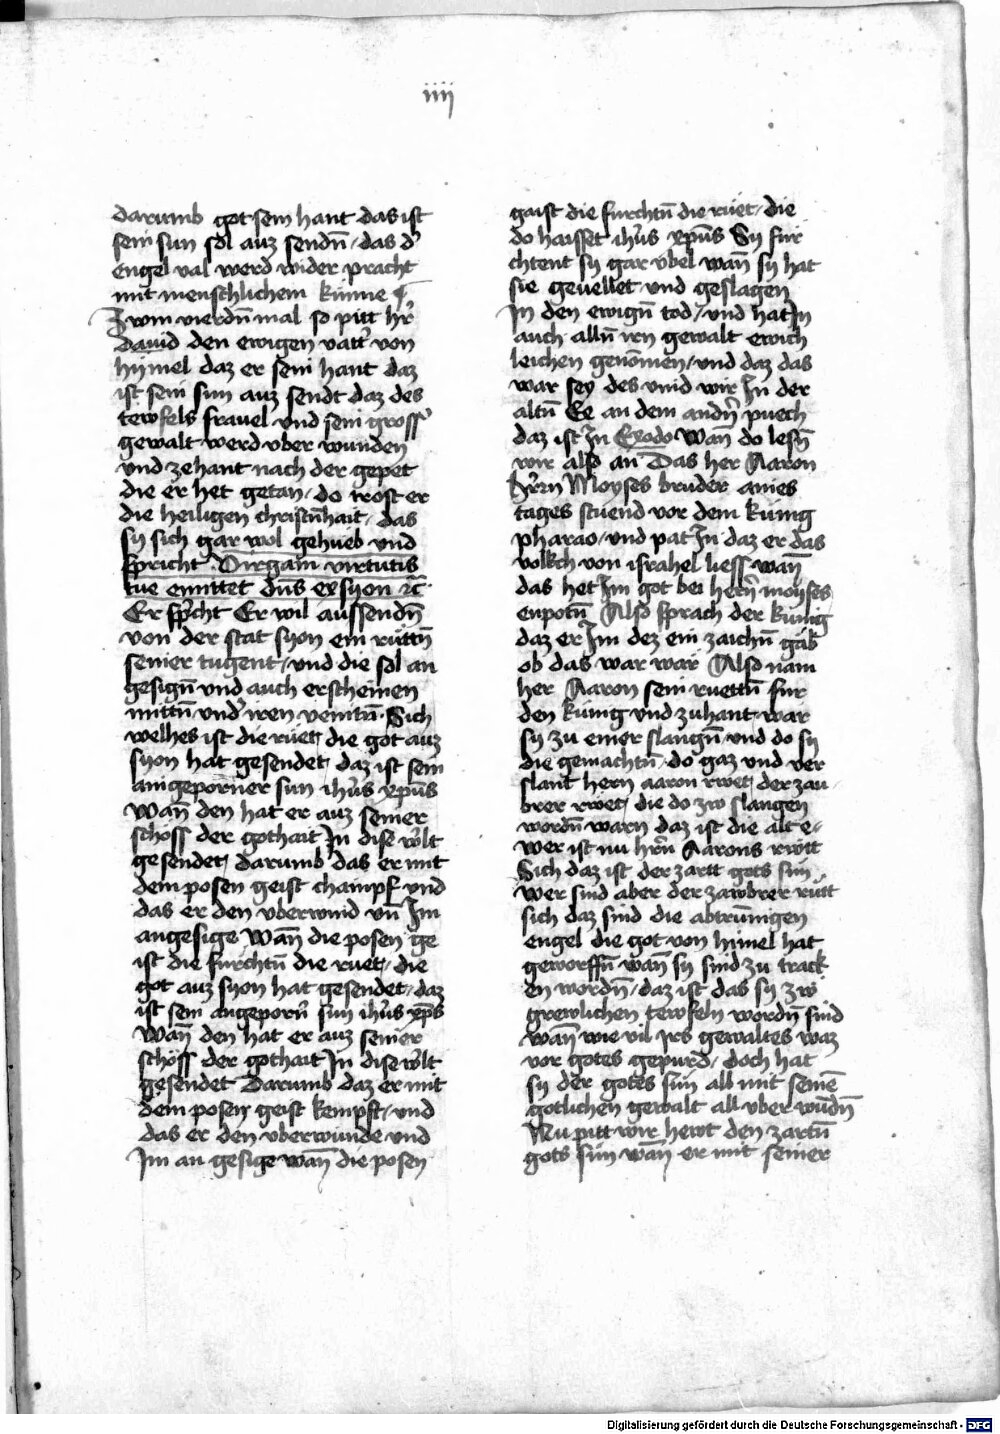 iiij
darumb got sein hant das ist
sein sun sol auz sendn̄ das d'
engel val werd wider pracht
mit menschlichem künne ¶
Zwm vierdn̄ mal so pitt hr̄
Dauid den ewigen vatt' von
hymel daz er sein hant daz
ist sein sun auz sendt daz des
tewfels frauel vnd sein gross'
gewalt werd vber wunden
vnd zehant nach der gepet
die er het getan / do trost er
die heiligen christn̄hait / das
sy sich gar wol gehueb vnd
spricht Virgam virtutis
tue emittet dn̄s ex syon ꝛc̄
Er sp'cht Er wil aussendn̄
von der stat syon ein rüttn̄
seiner tugent / vnd die sol an
gesign̄ vnd auch erscheinen
mittn̄ vnd' iren veintn̄ Sich
welhes ist die rüet / die got auz
syon hat gesendet / daz ist sein
aingeporner sun ih'us xp̄us
Wan̄ den hat er auz seiner
schöss der gothait In dise w'lt
gesendet / darumb das er mit
dem posen geist champf vnd
das er den vberwind vn̄ Im
angesige Wan̄ die posen ge
ist die furchtn̄ die ruet / die
got auz syon hat gesendet / daz
ist sein angeporn̄ sun ih'us xp̄s
Wan̄ den hat er auz seiner
schöss der gothait In dise w'lt
gesendet Darumb daz er mit
dem posen geist kempft / vnd
das er den vberwunde vnd
Im an gesige wan̄ die posen
gaist die furchtn̄ die rüet / die
do haisset ih'us xp̄us Sy fur
chtent sy gar vbel wan̄ sy hat
sie geuellet vnd geslagen
In den ewign̄ tod / vnd hat In
auch alln̄ irn gewalt ewich
leichen genomen / vnd daz das
war sey des vind wir In der
altn̄ Ee an dem andn̄ puech
daz ist In Exodo Wan̄ do lesn̄
wir also an Das her Aaron
h'rn Moyses bruder aines
tages stuend vor dem künig
pharao / vnd pat In daz er das
volkch von israhel liess wan̄
das het Im got bei hern̄ moyses
enpotn̄ Also sprach der künig
daz er Im dez ein zaichn̄ gäb
ob das war wär Also nam
her Aaron sein ruettn̄ für
den künig vnd zuhant wär
sy zu einer slangn̄ vnd do sy
die gemachtn̄ / do gaz vnd ver
slant hern aaron rwet / der zau
brer rwet / die do zw slangen
wordn̄ warn daz ist die alt e /
wer ist nu hrn̄ Aarons rwtt
Sich daz ist der zartt gots sun
wer sind aber der zawbrer rütt
sich daz sind die abtrünigen
engel die got von himel hat
geworffn̄ wan̄ sy sind zu track
en wordn̄ / daz ist das sy zw
grewlichen tewfeln wordn̄ sind
wan̄ wie vil irs gewaltes waz
vor gotes gepurd / doch hat
sy der gotes sun all mit seinē
gotlichen gewalt all vber wūdn̄
Nu pitt wir hewt den zartn̄
gots sun wan̄ er mit seiner
Digitalisierung gefördert durch die Deutsche Forschungsgemeinschaft - DFG